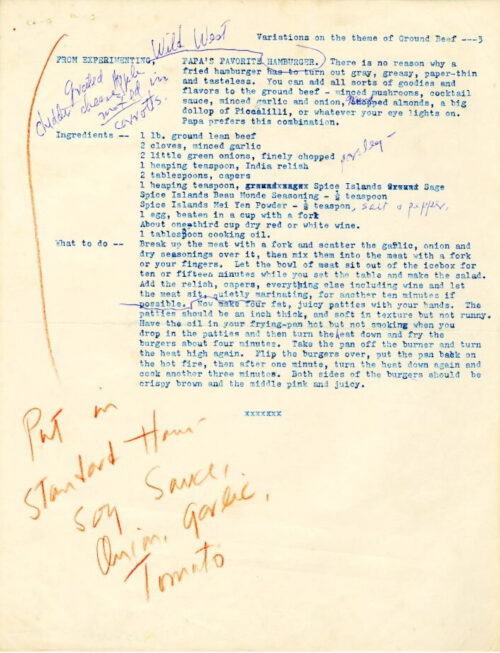 Variations on the theme of Ground Beef ---3
Wild West
FROM EXPERIMENTING, PAPA'S FAVORITE HAMBURGER. There is no reason why a
fried hamburger has to turn out gray, greasy, paper-thin
and tasteless. You can add all sorts of goodies and
flavors to the ground beef - minced mushrooms, cocktail
sauce, minced garlic and onion, chopped almonds, a big
dollop of Piccalilli, or whatever your eye lights on.
Papa prefers this combination.
grated apple
cheddar cheese,
minced in
carrots.
Ingredients -- 1 lb. ground lean beef
2 cloves, minced garlic
2 little green onions, finely chopped parsley -
1 heaping teaspoon, India relish
2 tablespoons, capers
1 heaping teaspoon, Spice Islands Sage
Spice Islands Beau Monde Seasoning - ½ teaspoon
Spice Islands Mei Yen Powder - ½ teaspon, salt & pepper,
1 egg, beaten in a cup with a fork
About one third cup dry red or white wine.
1 tablespoon cooking oil.
What to do -- Break up the meat with a fork and scatter the garlic, onion and
dry seasonings over it, then mix them into the meat with a fork
or your fingers. Let the bowl of meat sit out of the icebox for
ten or fifteen minutes while you set the table and make the salad.
Add the relish, capers, everything else including wine and let
the meat sit, quietly marinating, for another ten minutes if
possible. Now make four fat, juicy patties with your hands. The
patties should be an inch thick, and soft in texture but not runny.
Have the oil in your frying-pan hot but not smoking when you
drop in the patties and then turn the heat down and fry the
burgers about four minutes. Take the pan off the burner and turn
the heat high again. Flip the burgers over, put the pan back on
the hot fire, then after one minute, turn the heat down again and
cook another three minutes. Both sides of the burgers should be
crispy brown and the middle pink and juicy.
xxxxxxx
Put in
Standard Ham-
Soy Sauce,
Onion, garlic,
Tomato